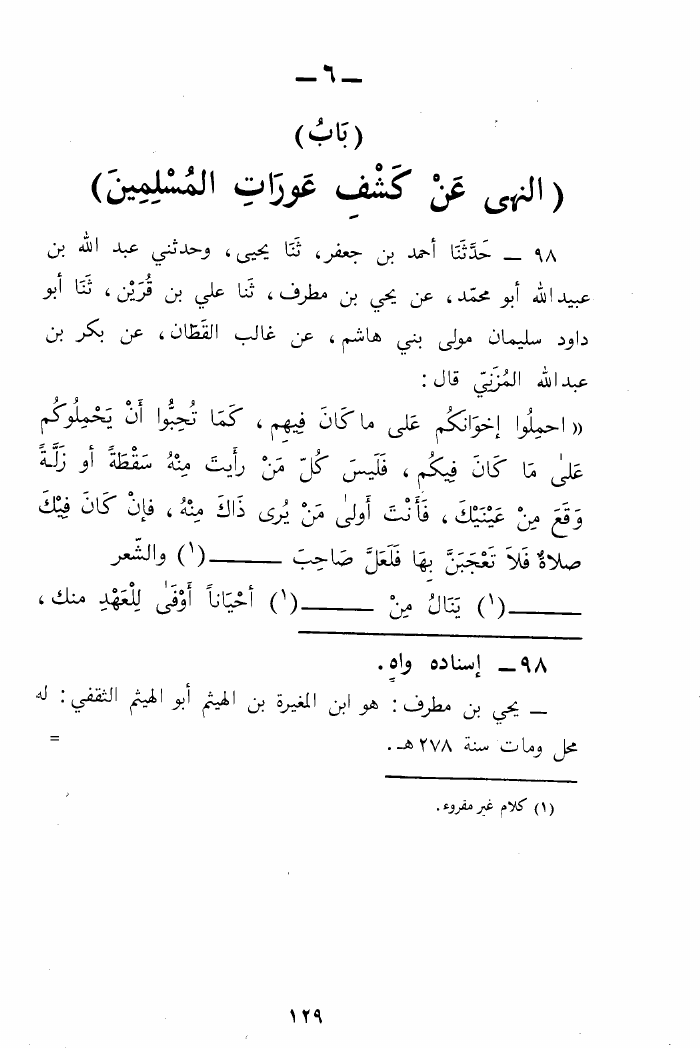 ـ ٦ ـ
( بَابُ )
( النهى عَنْ كَشْفِ عَورَاتِ المُسْلِمِينَ )
٩٨ ـ حَدَّثَنَا أحمد بن جعفر، ثَنَا يحيى، وحدثني عبد الله بن
عبيدالله أبو محمّد، عن يحي بن مطرف، ثَنا علي بن قُرَيْن، ثَنَا أبو
داود سليمان مولى بني هاشم، عن غالب القَطّان، عن بكر بن
عبدالله المُزَنِيّ قال :
« احمِلُوا إخوَانَكُم عَلى ما كَانَ فِيهِم، كَمَا تُحِبُّوا أَنْ يَحْمِلُوكُم
عَلىٰ مَا كَانَ فِيكُم، فَلَيسَ كُلّ مَنْ رأَيتَ مِنْهُ سَقْطَةً أو زَلَّةً
وَقَعَ مِنْ عَيْنَيْكَ، فَأَنْتَ أَولىٰ مَنْ يُرى ذَاكَ مِنْهُ، فإنْ كَانَ فِيْكَ
صلاةٌ فَلاَ تَعْجَبَنَّ بِهَا فَلَعَلَّ صَاحِبَ ــــــــ (١) والشّعر
ــــــــ (١) يَنَالُ مِنْ ــــــــ (١) أحْيَاناً أَوْفَىٰ لِلْعَهْدِ منك،
٩٨ ـ إسناده واهٍ.
ـ يحي بن مطرف : هو ابن المغيرة بن الهيثم أبو الهيثم الثقفي : له
محل ومات سنة ٢٧٨ هـ. =
(١) كلام غير مقروء.
١٢٩